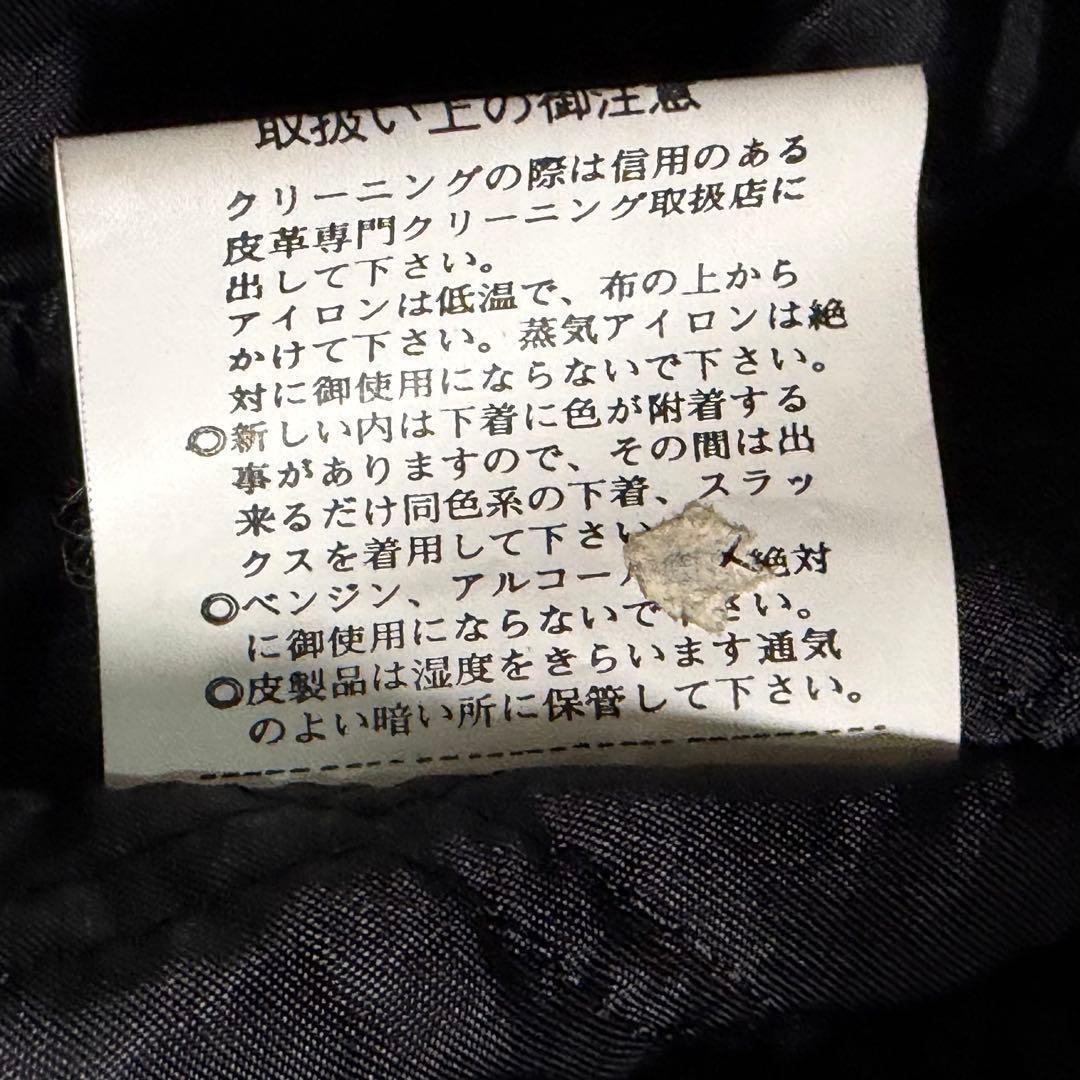 取扱い上の御注意
クリーニングの際は信用のある
皮革専門クリーニング取扱店に
出して下さい。
アイロンは低温で、布の上から
かけて下さい。蒸気アイロンは絶
対に御使用にならないで下さい。
◎新しい内は下着に色が附着する
事がありますので、その間は出
来るだけ同色系の下着、スラッ
クスを着用して下さい
◎ベンジン、アルコー 絶対
に御使用にならないで さい。
◎皮製品は湿度をきらいます通気
のよい暗い所に保管して下さい。